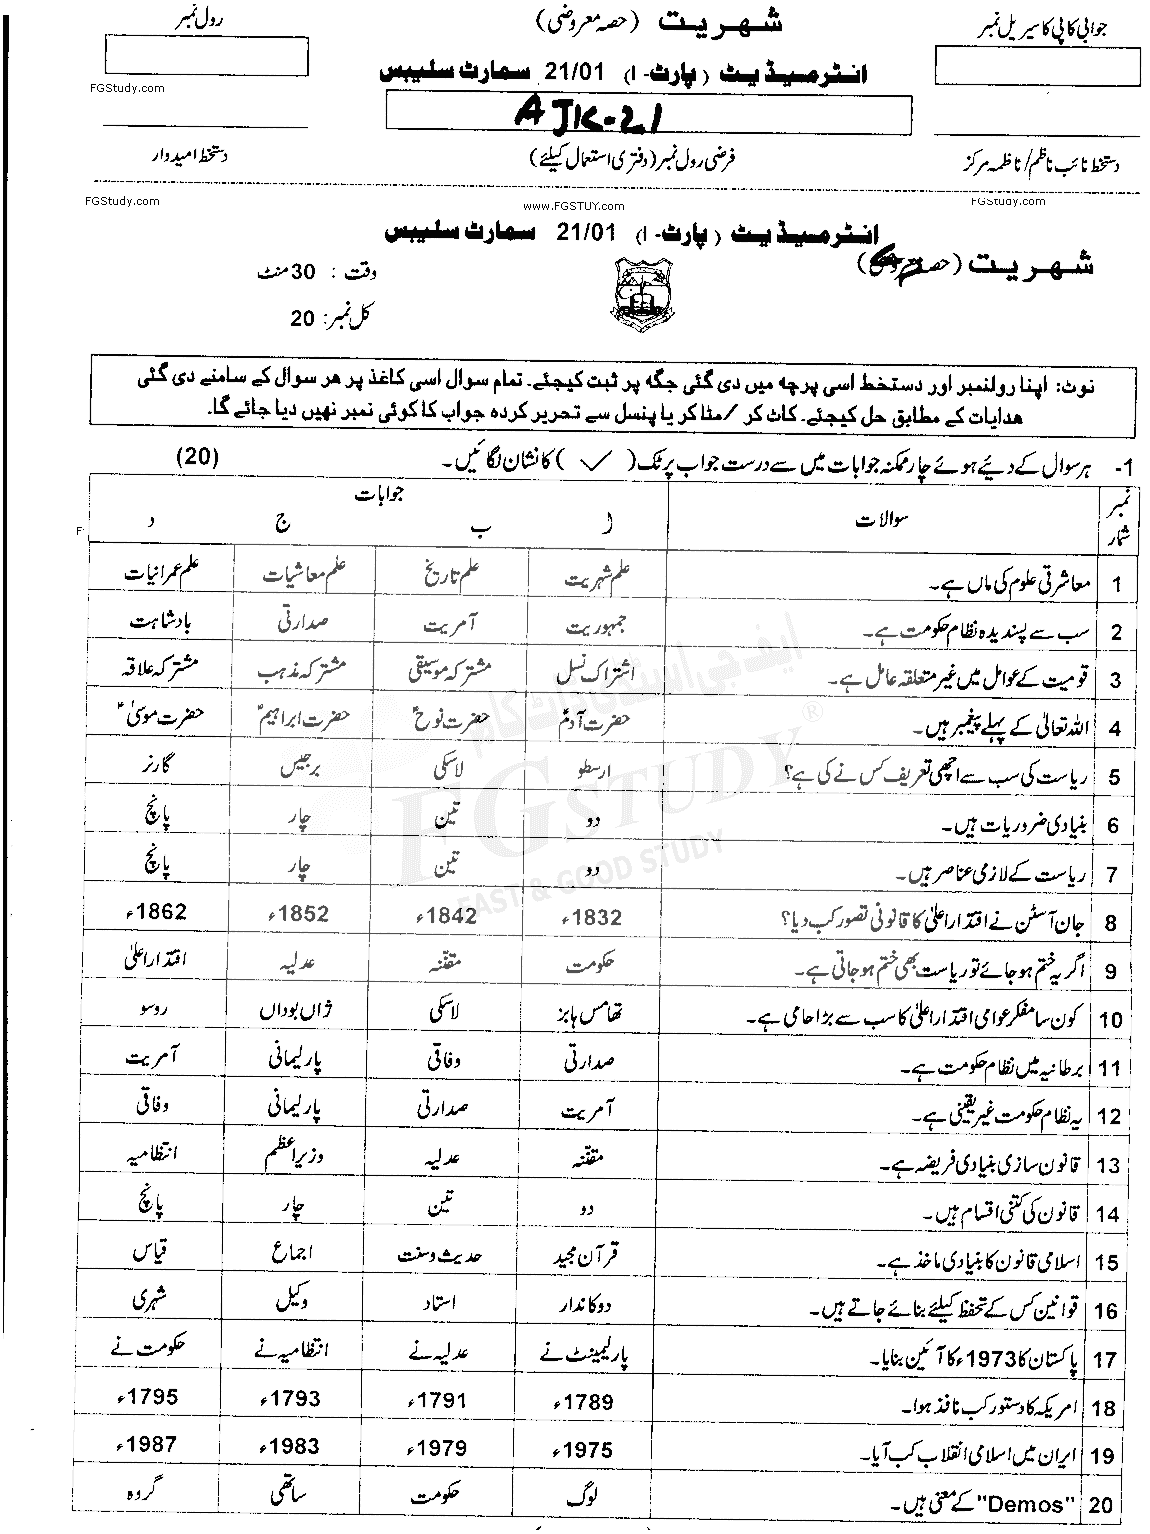 رول نمبر
شہریت (حصہ معروضی)
جوابی کاپی کا سیریل نمبر
انٹرمیڈیٹ (پارٹ - I) 21/01 سمارٹ سلیبس
FGStudy.com
AJK-21
دستخط امیدوار
فرضی رول نمبر (دفتری استعمال کیلئے)
دستخط نائب ناظم/ناظمہ مرکز
FGStudy.com
www.FGSTUY.com
FGStudy.com
انٹرمیڈیٹ (پارٹ - I) 21/01 سمارٹ سلیبس
شہریت (حصہ معروضی)
وقت : 30 منٹ
کل نمبر: 20
نوٹ: اپنا رولنمبر اور دستخط اسی پرچہ میں دی گئی جگہ پر ثبت کیجئے۔ تمام سوال اسی کاغذ پر ھر سوال کے سامنے دی گئی
ھدایات کے مطابق حل کیجئے۔ کاٹ کر /مٹا کر یا پنسل سے تحریر کردہ جواب کا کوئی نمبر نھیں دیا جائے گا۔
1- ہر سوال کے دیئے ہوئے چار ممکنہ جوابات میں سے درست جواب پر ٹک ( ✓ ) کا نشان لگائیں۔ (20)
نمبر شمار سوالات جوابات
ا ب ج د
1 معاشرتی علوم کی ماں ہے۔ علم شہریت علم تاریخ علم معاشیات علم عمرانیات
2 سب سے پسندیدہ نظام حکومت ہے۔ جمہوریت آمریت صدارتی بادشاہت
3 قومیت کے عوامل میں غیر متعلقہ عامل ہے۔ اشتراک نسل مشترکہ موسیقی مشترکہ مذہب مشترکہ علاقہ
4 اللہ تعالیٰ کے پہلے پیغمبر ہیں۔ حضرت آدمؑ حضرت نوحؑ حضرت ابراہیمؑ حضرت موسیٰؑ
5 ریاست کی سب سے اچھی تعریف کس نے کی ہے؟ ارسطو لاسکی برجیس گارنر
6 بنیادی ضروریات ہیں۔ دو تین چار پانچ
7 ریاست کے لازمی عناصر ہیں۔ دو تین چار پانچ
8 جان آسٹن نے اقتدار اعلیٰ کا قانونی تصور کب دیا؟ 1832ء 1842ء 1852ء 1862ء
9 اگر یہ ختم ہو جائے تو ریاست بھی ختم ہو جاتی ہے۔ حکومت مقننہ عدلیہ اقتدار اعلیٰ
10 کون سا مفکر عوامی اقتدار اعلیٰ کا سب سے بڑا حامی ہے۔ تھامس ہابز لاسکی ژاں بوداں روسو
11 برطانیہ میں نظام حکومت ہے۔ صدارتی وفاقی پارلیمانی آمریت
12 یہ نظام حکومت غیر یقینی ہے۔ آمریت صدارتی پارلیمانی وفاقی
13 قانون سازی بنیادی فریضہ ہے۔ مقننہ عدلیہ وزیراعظم انتظامیہ
14 قانون کی کتنی اقسام ہیں۔ دو تین چار پانچ
15 اسلامی قانون کا بنیادی ماخذ ہے۔ قرآن مجید حدیث و سنت اجماع قیاس
16 قوانین کس کے تحفظ کیلئے بنائے جاتے ہیں۔ دوکاندار استاد وکیل شہری
17 پاکستان کا 1973ء کا آئین بنایا۔ پارلیمینٹ نے عدلیہ نے انتظامیہ نے حکومت نے
18 امریکہ کا دستور کب نافذ ہوا۔ 1789ء 1791ء 1793ء 1795ء
19 ایران میں اسلامی انقلاب کب آیا۔ 1975ء 1979ء 1983ء 1987ء
20 "Demos" کے معنی ہیں۔ لوگ حکومت ساتھی گروہ
ایف جی اسٹڈی ڈاٹ کام
FGSTUDY®
FAST & GOOD STUDY